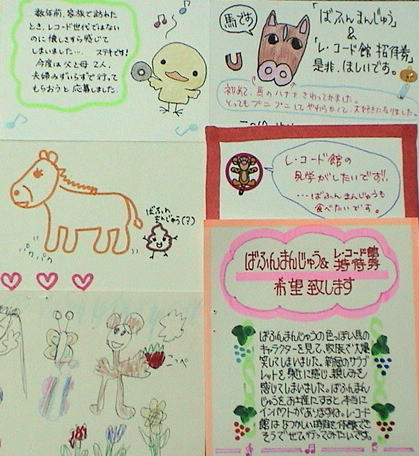 数年前、家族で訪れた
とき、レコード世代ではない
のに懐しさを感じて
しまいました… ステキです!
今度は父と母 2人、
夫婦みずいらずで行って
もらおうと応募しました
馬です
「ばふんまんじゅう」
&
「レ・コード館 招待券」
是非、ほしいです。
初めて、馬のハナをさわってみました。
とってもプニプニしてやわらかくて、大好きになりました。
レ・コード館の
見学がしたいです!!
…ばふんまんじゅうも
食べたいです。
ばふん
まんじゅう(?)
ばふんまんじゅう& レ・コード館
招待券
希望致します
ばふんまんじゅうの色っぽい馬の
キャラクターを見て、家族で大爆
笑してしまいました。新冠のサラブ
レットを身近に感じ、親しみを
感じてしまいました。ばふんまん
じゅうを、お土産にすると、本当に
インパクトがありますね。レコード
館はなつかしい時間を体験でき
そうでぜひ行ってみたいです。